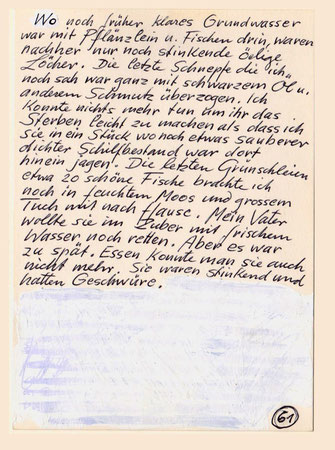 Wo noch früher klares Grundwasser
war mit Pflänzlein u. Fischen drin, waren
nachher nur noch stinkende ölige
Löcher. Die letzte Schnepfe die ich
noch sah war ganz mit schwarzem Öl u.
anderem Schmutz überzogen. Ich
konnte nichts mehr tun um ihr das
Sterben leicht zu machen als dass ich
sie in ein Stück wo noch etwas sauberer
dichter Schilfbestand war dort
hinein jagen. Die letzten Grünschleien
etwa 20 schöne Fische brachte ich
noch in feuchtem Moos und grossem
Tuch mit nach Hause. Mein Vater
wollte sie im Zuber mit frischem
Wasser noch retten. Aber es war
zu spät. Essen konnte man sie auch
nicht mehr. Sie waren stinkend und
hatten Geschwüre.
61